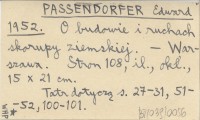 PASSENDORFER Edward
1952. O budowie i ruchach
skorupy ziemskiej. — War-
szawa. Stron 108, il., okł.,
15 x 21 cm.
Tatr dotyczą s. 27-31, 51-
-52, 100-101.